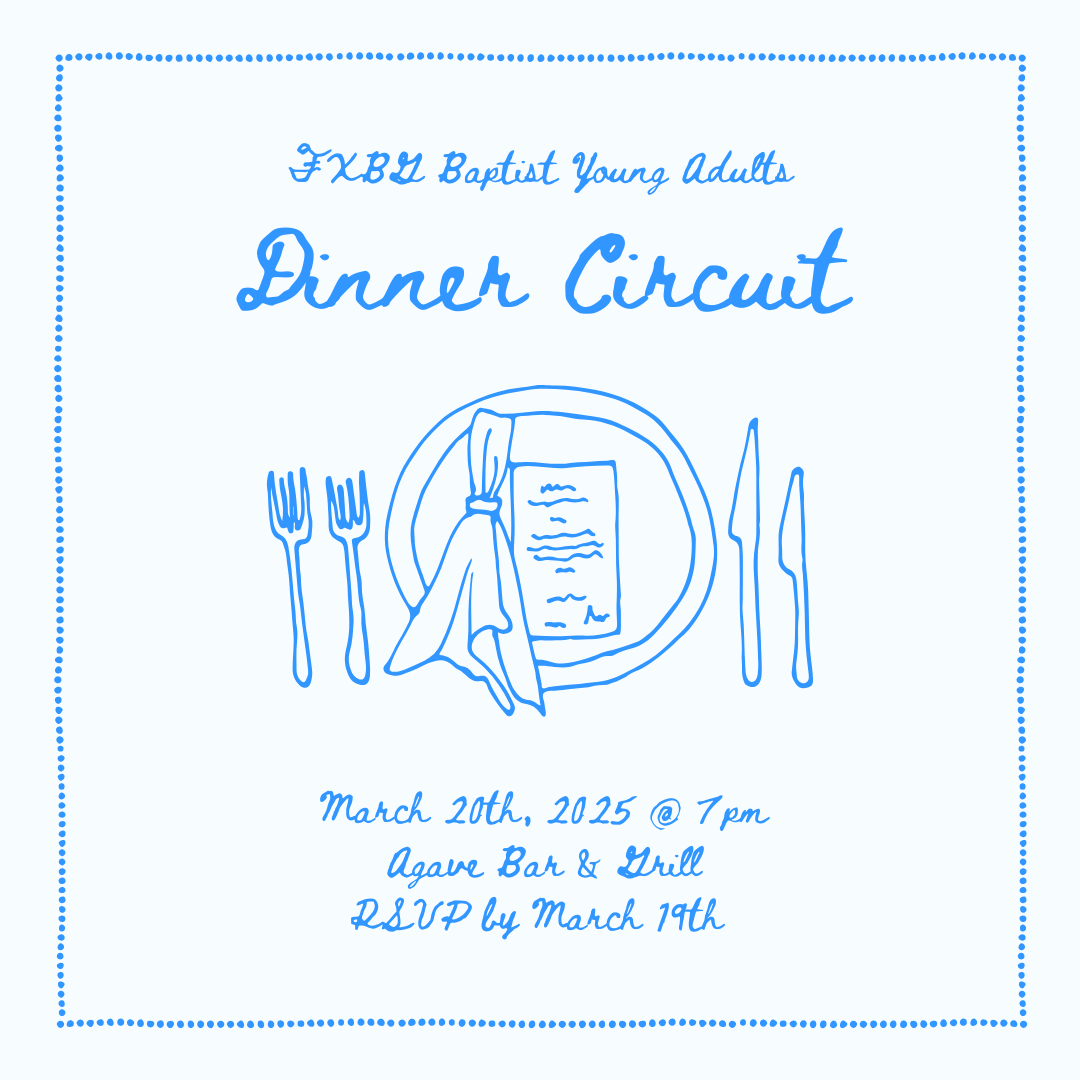 FXBG Baptist Young Adults
Dinner Circuit
March 20th, 2025 @ 7pm
Agave Bar & Grill
RSVP by March 19th